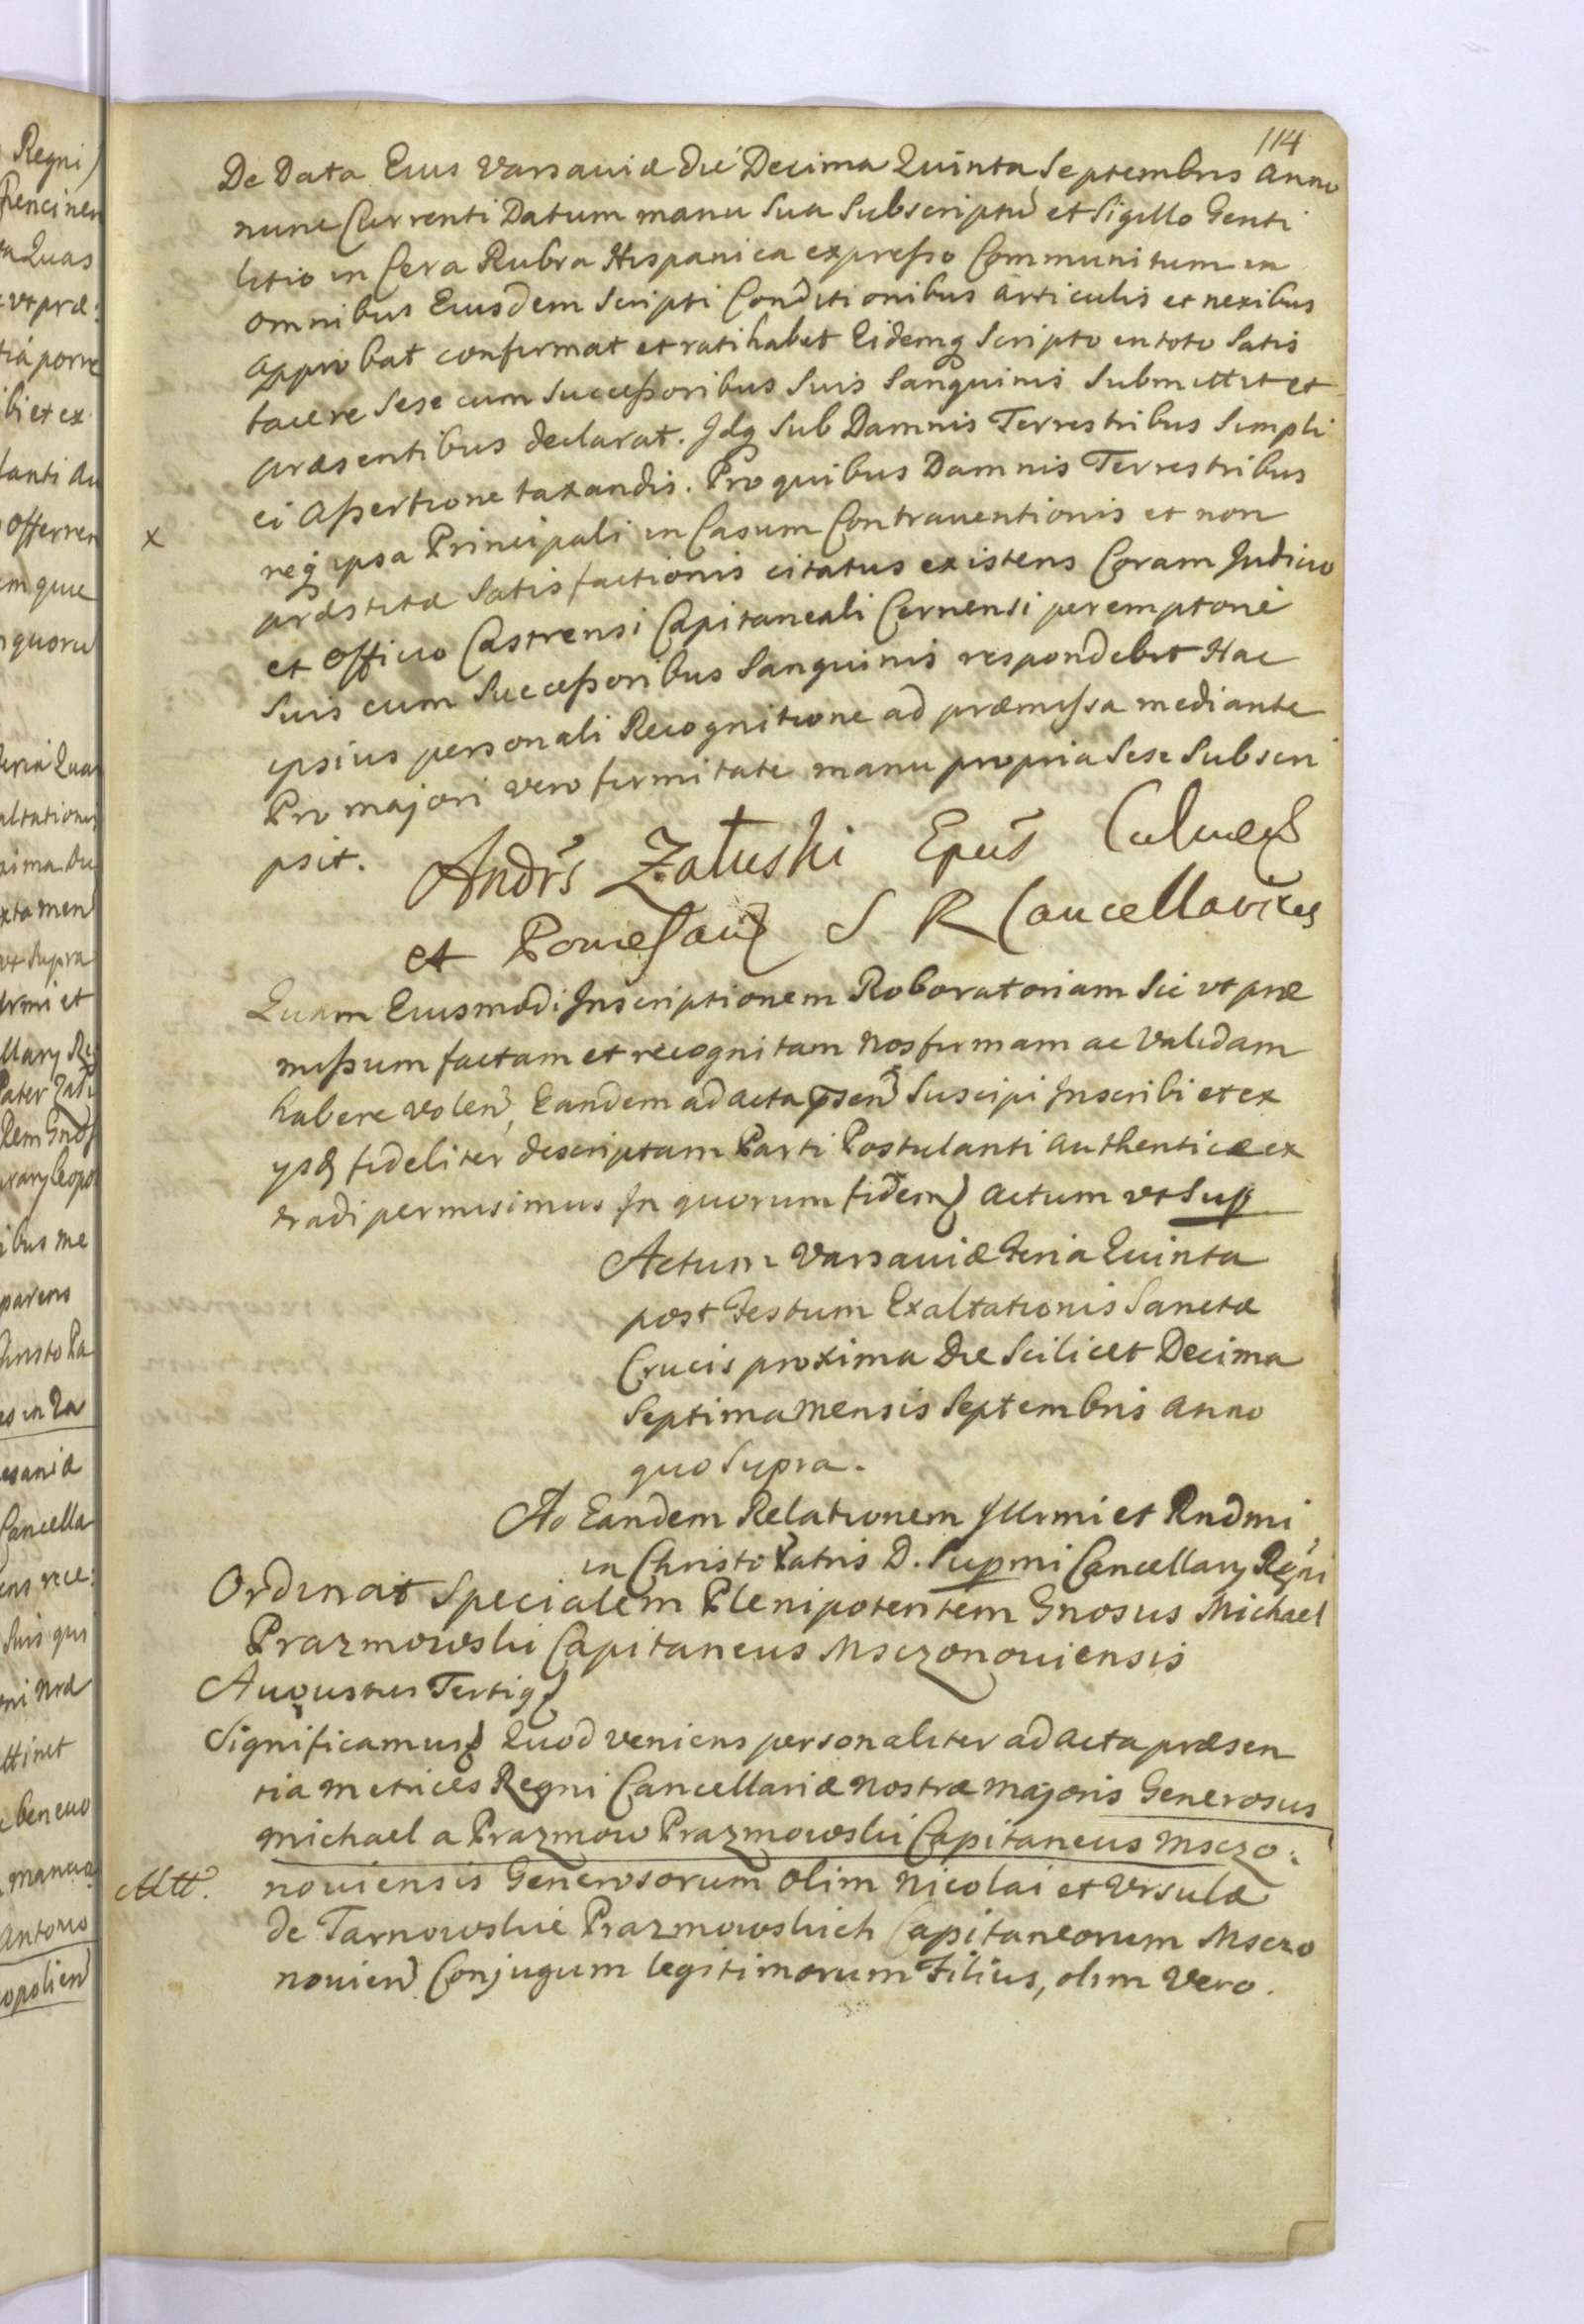 114
De Data Eius Varsaviæ die Decima Quinta Septembris Anno
nunc Currenti Datum manu Sua Subscriptū et Sigillo Genti
litio in Cera Rubra Hispanica expresso Communitum in
omnibus Eiusdem Scripti Conditionibus articulis et nexibus
approbat confirmat et ratihabet Eidemq Scripto in toto Satis
facere Sese cum Successoribus Suis Sanguinis Submittit et
præsentibus declarat. Idq Sub Damnis Terrestribus Simpli
ci Assertione taxandis. Pro quibus Damnis Terrestribus
x
req ipsa Principali in Casum Contrauentionis et non
præstitæ Satisfactionis citatus existens Coram Judicio
et Officio Castrensi Capitaneali Cernensi peremptorie
Suis cum Successoribus Sanguinis respondebit Hac
ipsius personali Recognitione ad præmissa mediante
Pro majori vero firmitate manu propria Sese Subscri
psit.
Andrs Załuski Epūs Culmen
et Pomesan S R Cancellarius
Quam Eiusmodi Inscriptionem Roboratoriam Sic vt præ
missum factam et recognitam Nos firmam ac Validam
habere volen, Eandem ad acta psen Suscipi Inscribi et ex
ysd fideliter descriptam Parti Postulanti authenticæ ex
tradi permisimus In quorum fidem Actum vt Sup
Actum Varsaviæ Feria Quinta
post Festum Exaltationis Sanctæ
Crucis proxima Die Scilicet Decima
Septima Mensis Septembris Anno
quo Supra.
Ad Eandem Relationem Illrmi et Rndmi
in Christo Patris D. Supmi Cancellarij Regni
Ordinat Specialem Plenipotentem Gnosus Michael
Prazmowski Capitaneus Msczonouiensis
Augustus Tertig
Significamus Quod veniens personaliter ad Acta præsen
tia Metrices Regni Cancellariæ Nostræ Majoris Generosus
Michael a Prazmow Prazmowski Capitaneus Msczo:
Mtt.
nouiensis Generosorum olim Nicolai et Vrsulæ
de Tarnowskie Prazmowskich Capitaneorum Msczo
nouien Conjugum legitimorum Filius, olim Vero.